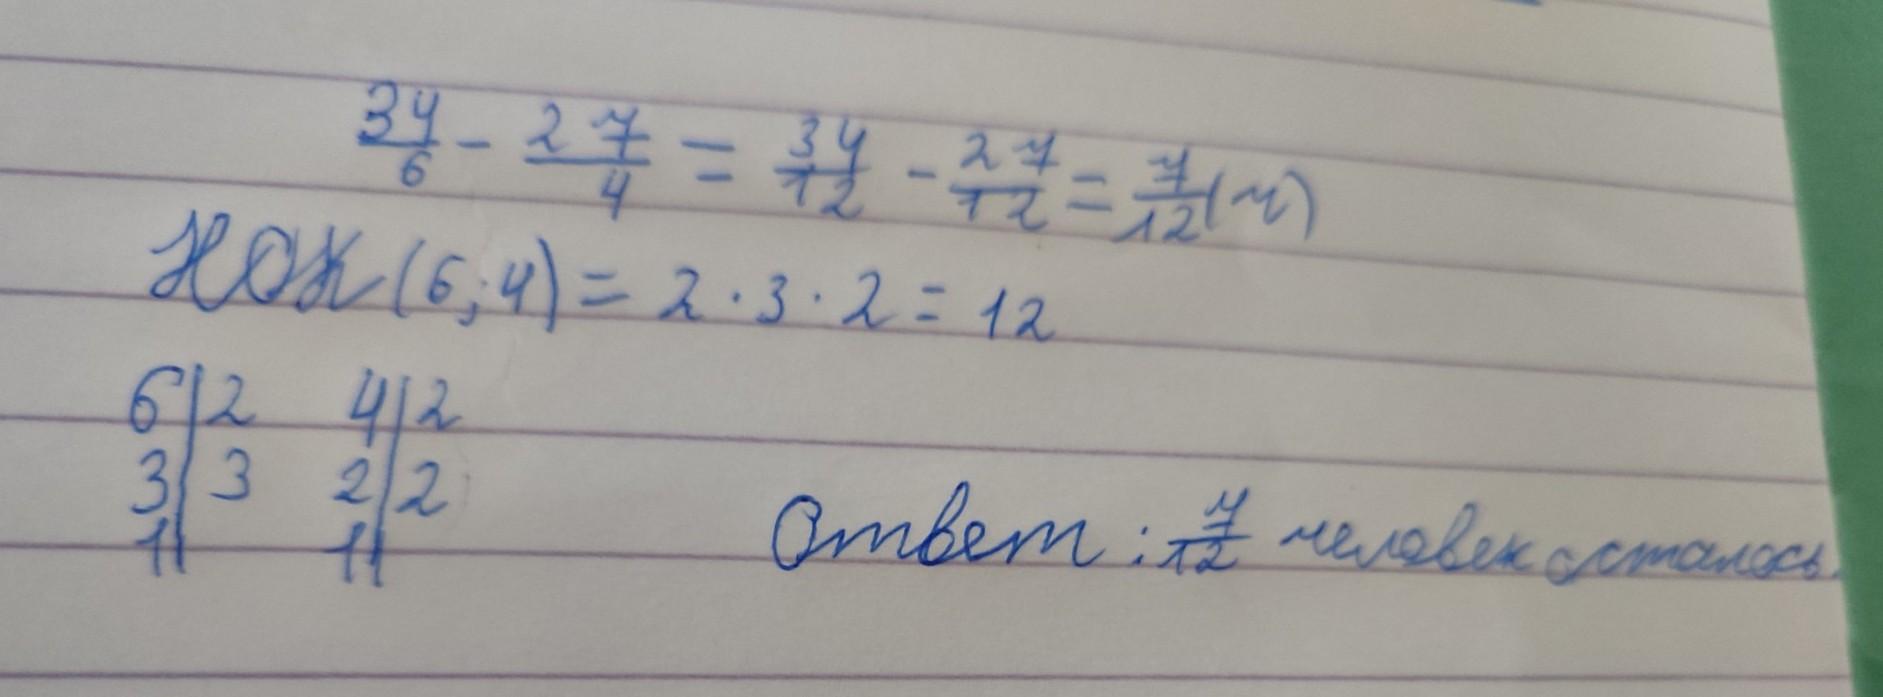 34/6 - 27/4 = 34/12 - 27/12 = 7/12 (ч)
НОК (6; 4) = 2 · 3 · 2 = 12
6|2 4|2
3|3 2|2
1| 1|
Ответ: 7/12 человек осталось.